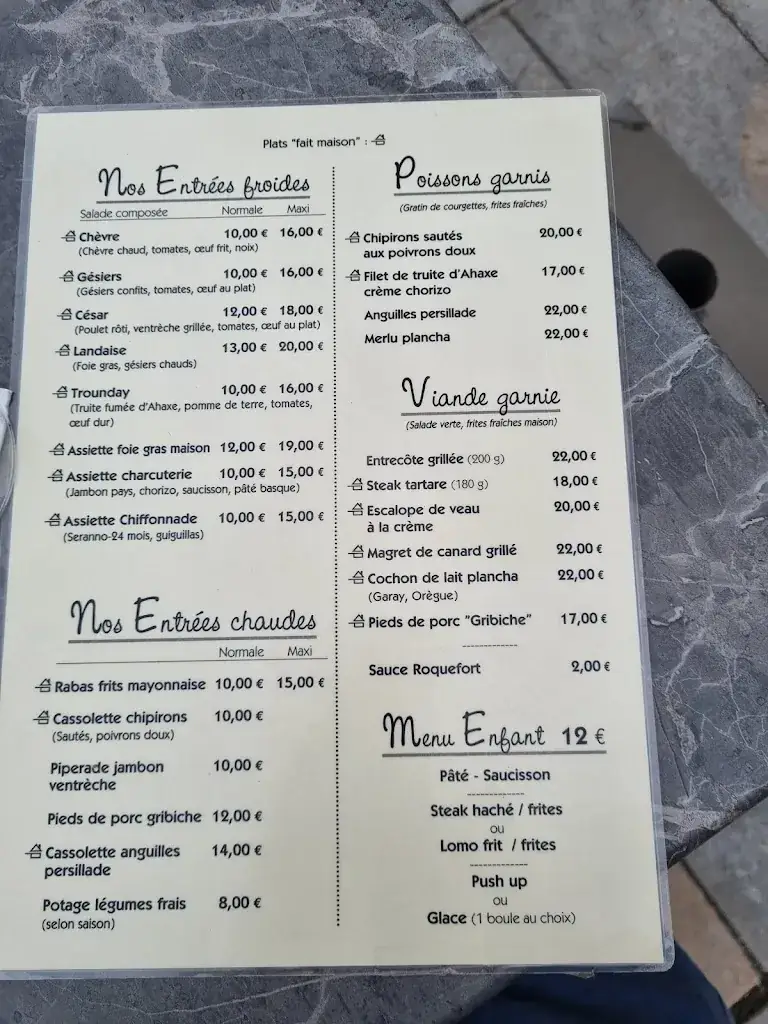 Plats "fait maison" :
Nos Entrées froides
Salade composée Normale Maxi
Chèvre 10,00 € 16,00 €
(Chèvre chaud, tomates, œuf frit, noix)
Gésiers 10,00 € 16,00 €
(Gésiers confits, tomates, œuf au plat)
César 12,00 € 18,00 €
(Poulet rôti, ventrèche grillée, tomates, œuf au plat)
Landaise 13,00 € 20,00 €
(Foie gras, gésiers chauds)
Trounday 10,00 € 16,00 €
(Truite fumée d'Ahaxe, pomme de terre, tomates,
œuf dur)
Assiette foie gras maison 12,00 € 19,00 €
Assiette charcuterie 10,00 € 15,00 €
(Jambon pays, chorizo, saucisson, pâté basque)
Assiette Chiffonnade 10,00 € 15,00 €
(Seranno-24 mois, guiguillas)
Nos Entrées chaudes
Normale Maxi
Rabas frits mayonnaise 10,00 € 15,00 €
Cassolette chipirons 10,00 €
(Sautés, poivrons doux)
Piperade jambon 10,00 €
ventrèche
Pieds de porc gribiche 12,00 €
Cassolette anguilles 14,00 €
persillade
Potage légumes frais 8,00 €
(selon saison)
Poissons garnis
(Gratin de courgettes, frites fraîches)
Chipirons sautés 20,00 €
aux poivrons doux
Filet de truite d'Ahaxe 17,00 €
crème chorizo
Anguilles persillade 22,00 €
Merlu plancha 22,00 €
Viande garnie
(Salade verte, frites fraîches maison)
Entrecôte grillée (200 g) 22,00 €
Steak tartare (180 g) 18,00 €
Escalope de veau 20,00 €
à la crème
Magret de canard grillé 22,00 €
Cochon de lait plancha 22,00 €
(Garay, Orègue)
Pieds de porc "Gribiche" 17,00 €
-------------
Sauce Roquefort 2,00 €
Menu Enfant 12 €
Pâté - Saucisson
-------------
Steak haché / frites
ou
Lomo frit / frites
-------------
Push up
ou
Glace (1 boule au choix)